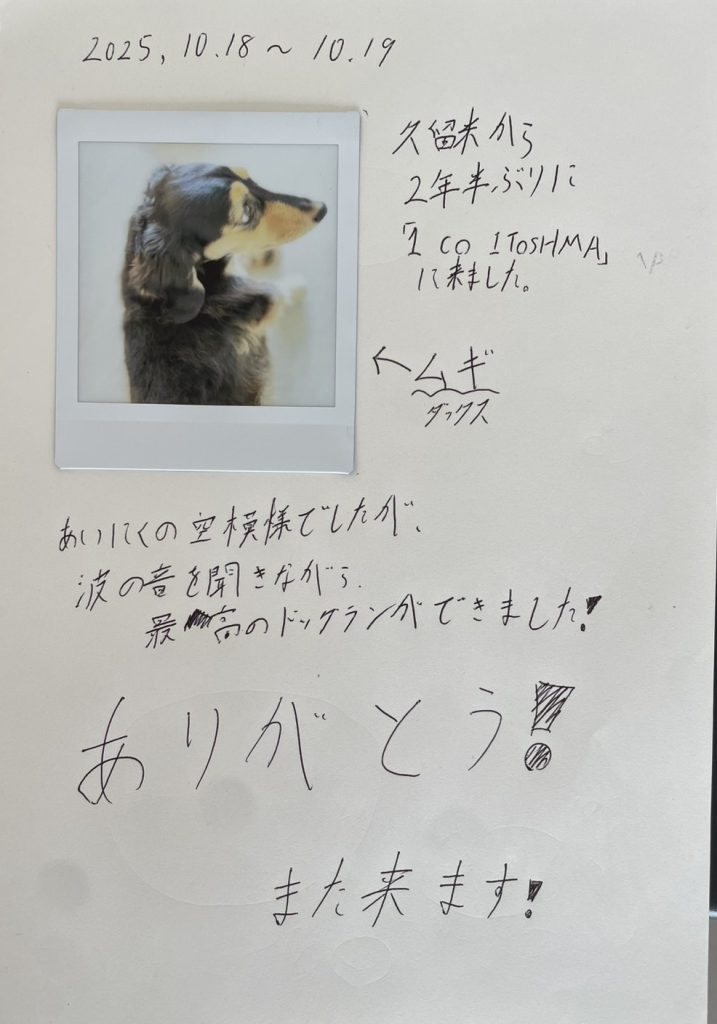 2025, 10.18 〜 10.19
久留米から
2年半ぶりに
「1 CO ITOSHMA」
に来ました。
←ムギ
ダックス
あいにくの空模様でしたが、
波の音を聞きながら、
最高のドッグランができました!
ありがとう!
また来ます!